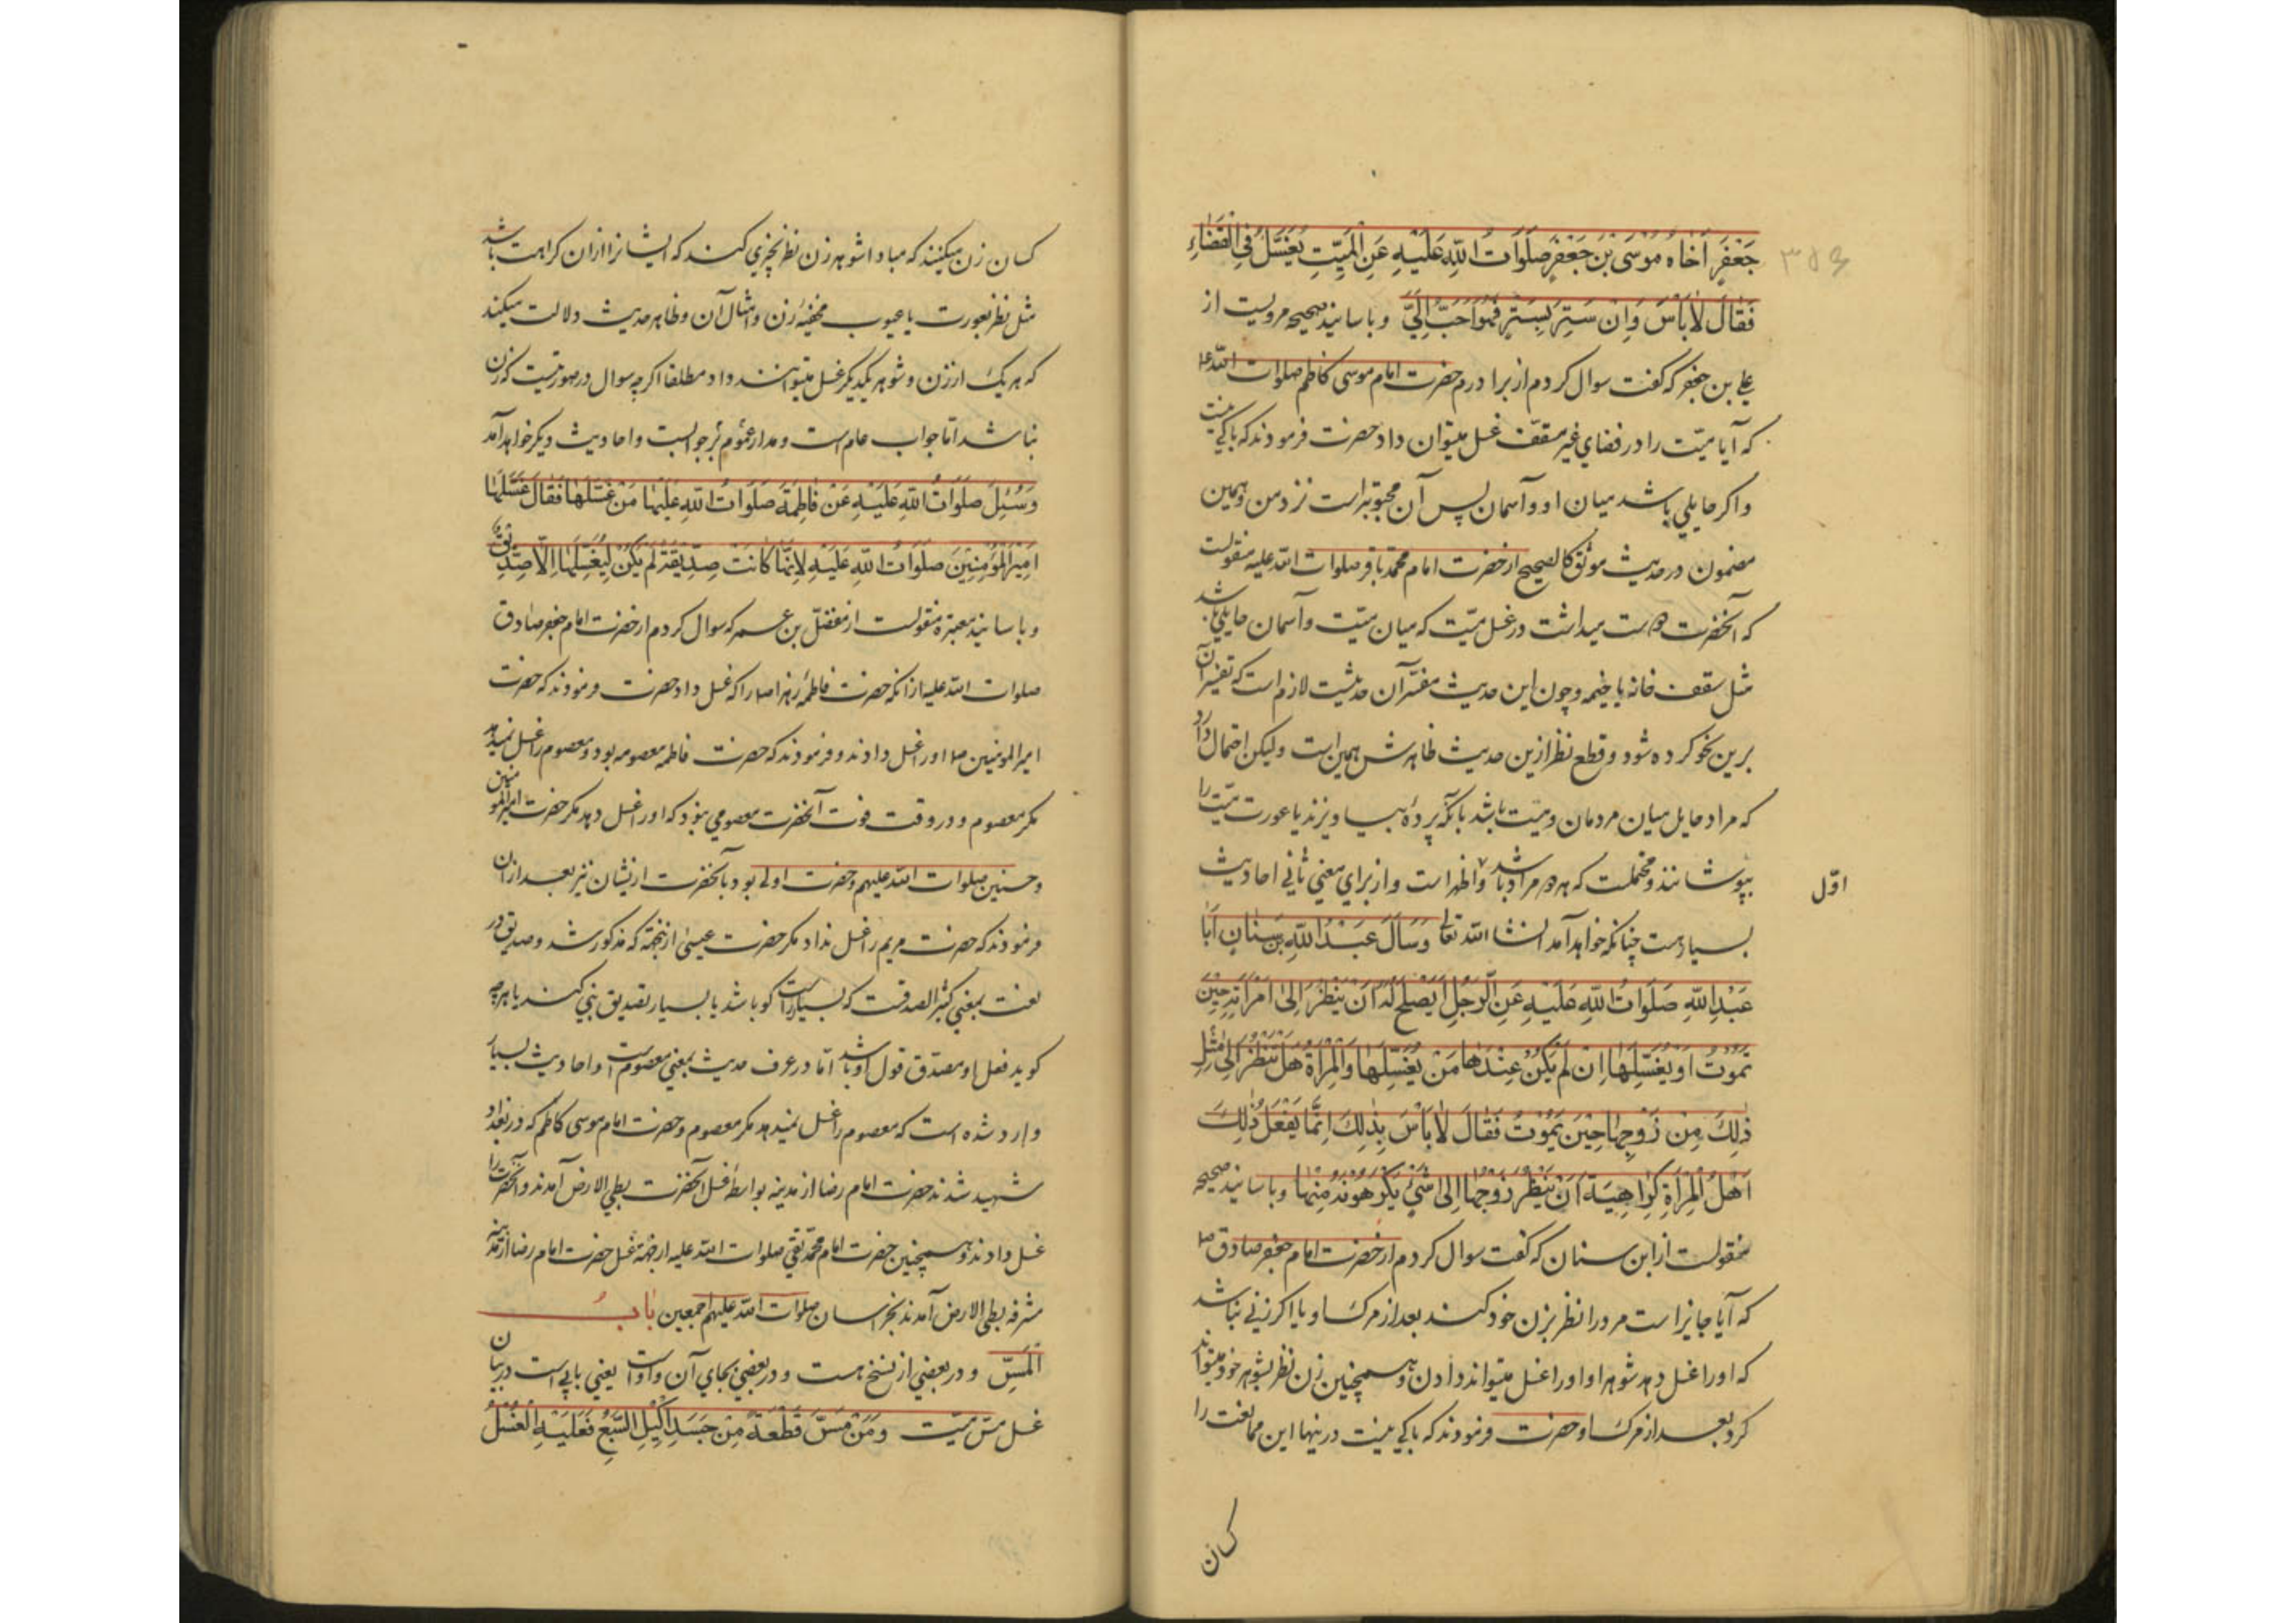 جَعْفَرٍ اَخَاهُ مُوْسَی بْنَ جَعْفَرٍ صَلَوَاتُ اللّٰهِ عَلَیْهِ عَنِ الْمَیِّتِ یُغَسَّلُ فِی الْفَضَاءِ
فَقَالَ لَابَأْسَ وَاِنْ سَتِرَ بِسِتْرٍ فَهُوَ اَحَبُّ اِلَیَّ وباسانید صحیحه مرویست از
علی بن جعفر که کفت سوال کردم از برادرم حضرت امام موسی کاظم صلوات الله ع
که آیا میّت را در فضای غیر مسقّف غسل میتوان داد حضرت فرمودند که باکی نیست
واکر حایلی باشد میان او وآسمان پس آن محبوبتر است نزد من وهمین
مضمون در حدیث موثق کالصحیح از حضرت امام محمد باقر صلوات الله علیه منقولست
که آنحضرت دوست میداشت در غسل میّت که میان میّت وآسمان حایلی باشد
مثل سقف خانه یا خیمه وچون این حدیث مفسّر آن حدیثست لازم است که تفسیر آن
برین نحو کرده شود وقطع نظر ازین حدیث ظاهرش همین است ولیکن احتمال دارد
که مراد حایل میان مردمان ومیّت باشد بآنکه پردهٔ بیاویزند یا عورت میّت را
بپوشانند ومحتملست که هر دو مراد باشد واظهر است واز برای معنی ثانی احادیث
اوّل
بسیارست چنانکه خواهد آمد انشاالله تعالی وَسَاَلَ عَبْدُ اللّٰهِ بْنِ سِنَانٍ اَبَا
عَبْدِ اللّٰهِ صَلَوَاتُ اللّٰهِ عَلَیْهِ عَنِ الرَّجُلِ اَیَصْلَحُ لَهُ اَنْ یَنْظُرَ اِلیٰ اِمْرَاَتِهِ حِیْنَ
تَمُوْتُ اَوْ یُغَسِّلَهَا اِنْ لَمْ یَکُنْ عِنْدَهَا مَنْ یُغَسِّلُهَا وَالْمَرْاَةُ هَلْ تَنْظُرُ اِلیٰ مِثْلِ
ذٰلِكَ مِنْ زَوْجِهَا حِیْنَ یَمُوْتُ فَقَالَ لَابَأْسَ بِذٰلِكَ اِنَّمَا یَفْعَلُ ذٰلِكَ
اَهْلُ الْمَرْاَةِ کَرَاهِیَةَ اَنْ یَنْظُرَ زَوْجُهَا اِلیٰ شَیْءٍ یَکْرَهُوْنَهُ مِنْهَا وباسانید صحیحه
منقولست از ابن سنان که کفت سوال کردم از حضرت امام جعفر صادق ص
که آیا جایز است مرد را نظر بزن خود کند بعد از مرک او یا اکر زنی نباشد
که او را غسل دهد شوهر او او را غسل میتواند دادن وهمچنین زن نظر بشوهر خود میتواند
کرد بعد از مرک او حضرت فرمودند که باکی نیست درینها این ممانعت را
کسان
کسان زن میکنند که مبادا شوهر زن نظر بچیزی کند که ایشانرا از ان کراهت باشد
مثل نظر بعورت یا عیوب مخفیهٔ زن وامثال آن وظاهر حدیث دلالت میکند
که هر یک از زن وشوهر یکدیکر غسل میتوانند داد مطلقا اکرچه سوال در صورتیست که زن
نباشد امّا جواب عام است ومدار عموم بر جوابست واحادیث دیکر خواهد آمد
وَسُئِلَ صَلَوَاتُ اللّٰهِ عَلَیْهِ عَنْ فَاطِمَةَ صَلَوَاتُ اللّٰهِ عَلَیْهَا مَنْ غَسَّلَهَا فَقَالَ غَسَّلَهَا
اَمِیْرُ الْمُؤْمِنِیْنَ صَلَوَاتُ اللّٰهِ عَلَیْهِ لِاَنَّهَا کَانَتْ صِدِّیْقَةً لَمْ یَکُنْ لِیُغَسِّلَهَا اِلَّا صِدِّیْقٌ
وباسانید معتبره منقولست از مفضّل بن عمر که سوال کردم از حضرت امام جعفر صادق
صلوات الله علیه از آنکه حضرت فاطمهٔ زهرا ص را که غسل داد حضرت فرمودند که حضرت
امیر المومنین ص او را غسل دادند وفرمودند که حضرت فاطمه معصومه بود ومعصوم را غسل نمیدهد
مکر معصوم ودر وقت فوت آنحضرت معصومی نبود که او را غسل دهد مکر حضرت امیر المومنین
وحسنین صلوات الله علیهم وحضرت اولی بود بآنحضرت از یشان نیز بعد از ان
فرمودند که حضرت مریم را غسل نداد مکر حضرت عیسیٰ ازینجهة که مذکور شد وصدیق در
لغت بمعنی کثیر الصدقست که بسیار راست کو باشد یا بسیار تصدیق نبی کند یا هرچه
کوید فعل او مصدق قول او باشد امّا در عرف حدیث بمعنی معصوم است واحادیث بسیار
وارد شده است که معصوم را غسل نمیدهد مکر معصوم وحضرت امام موسی کاظم که در بغداد
شهید شدند حضرت امام رضا از مدینه بواسطهٔ غسل آنحضرت بطی الارض آمدند وآنحضرت را
غسل دادند وهمچنین حضرت امام محمد تقی صلوات الله علیه از جهة غسل حضرت امام رضا از مدینه
مشرفه بطی الارض آمدند بخراسان صلوات الله علیهم اجمعین بَابُ
الْمَسِّ ودر بعضی از نسخ هست ودر بعضی بجای آن واو است یعنی بابی است در بیان
غسل مسّ میّت وَمَنْ مَسَّ قِطْعَةً مِنْ جَسَدِ اَکِیْلِ السَّبُعِ فَعَلَیْهِ الْغُسْلُ